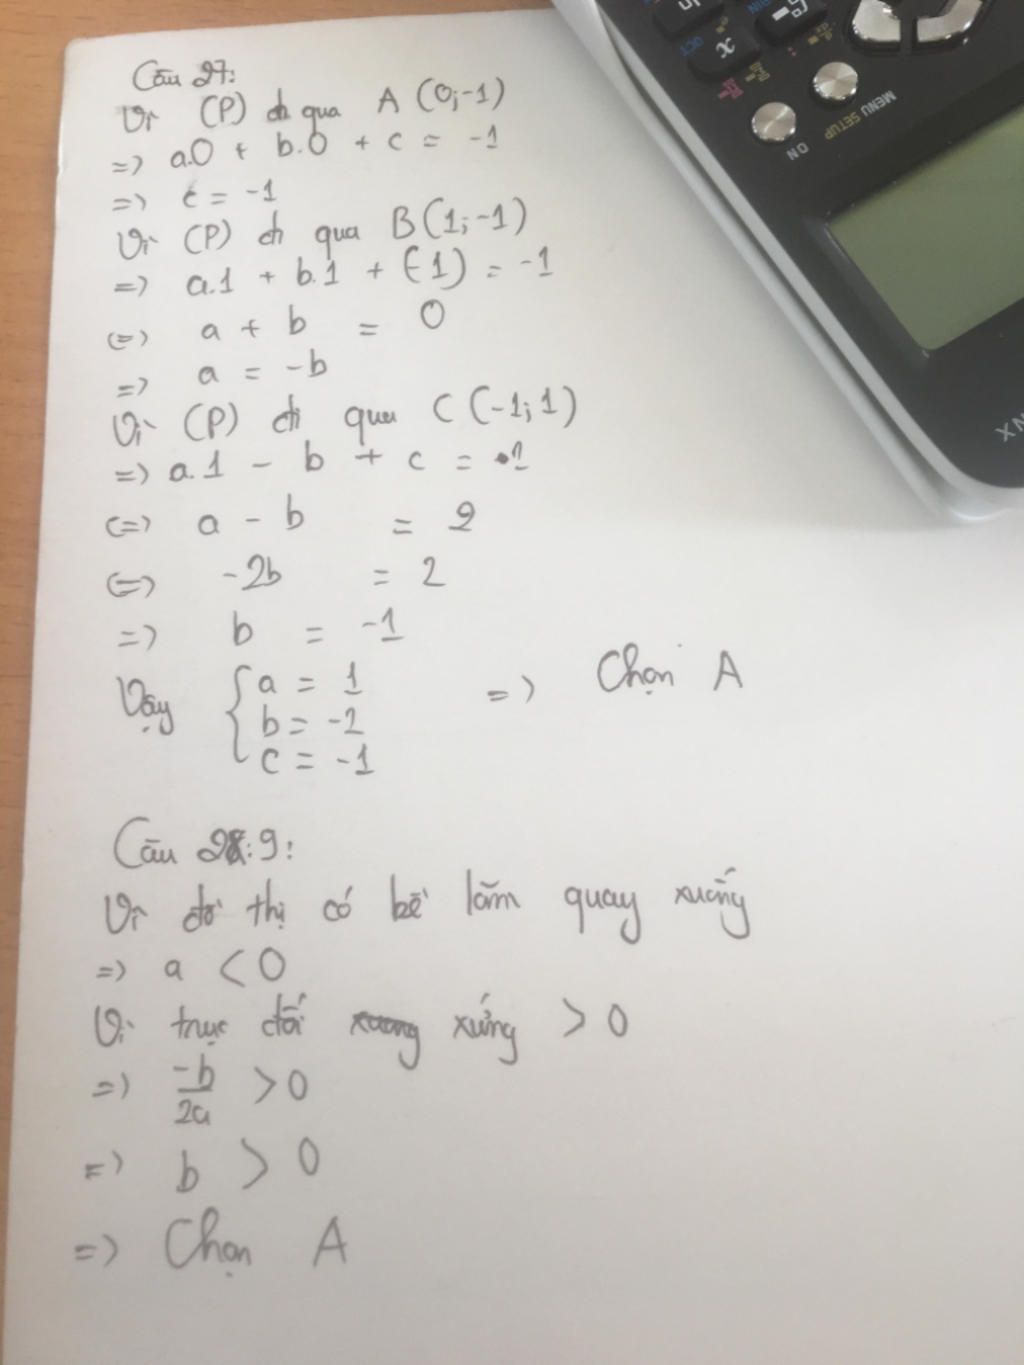 Câu 27:
Vì (P) đi qua A (0;-1)
=> a.0 + b.0 + c = -1
=> c = -1
Vì (P) đi qua B(1;-1)
=> a.1 + b.1 + (-1) = -1
<=> a + b = 0
=> a = -b
Vì (P) đi qua C (-1;1)
=> a.1 - b + c = 1
<=> a - b = 2
<=> -2b = 2
=> b = -1
Vậy { a = 1 => Chọn A
b = -2
c = -1
Câu 29:
Vì đồ thị có bề lõm quay xuống
=> a < 0
Vì trục đối xứng > 0
=> -b/2a > 0
=> b > 0
=> Chọn A
ON
MENU SETUP
x
NX